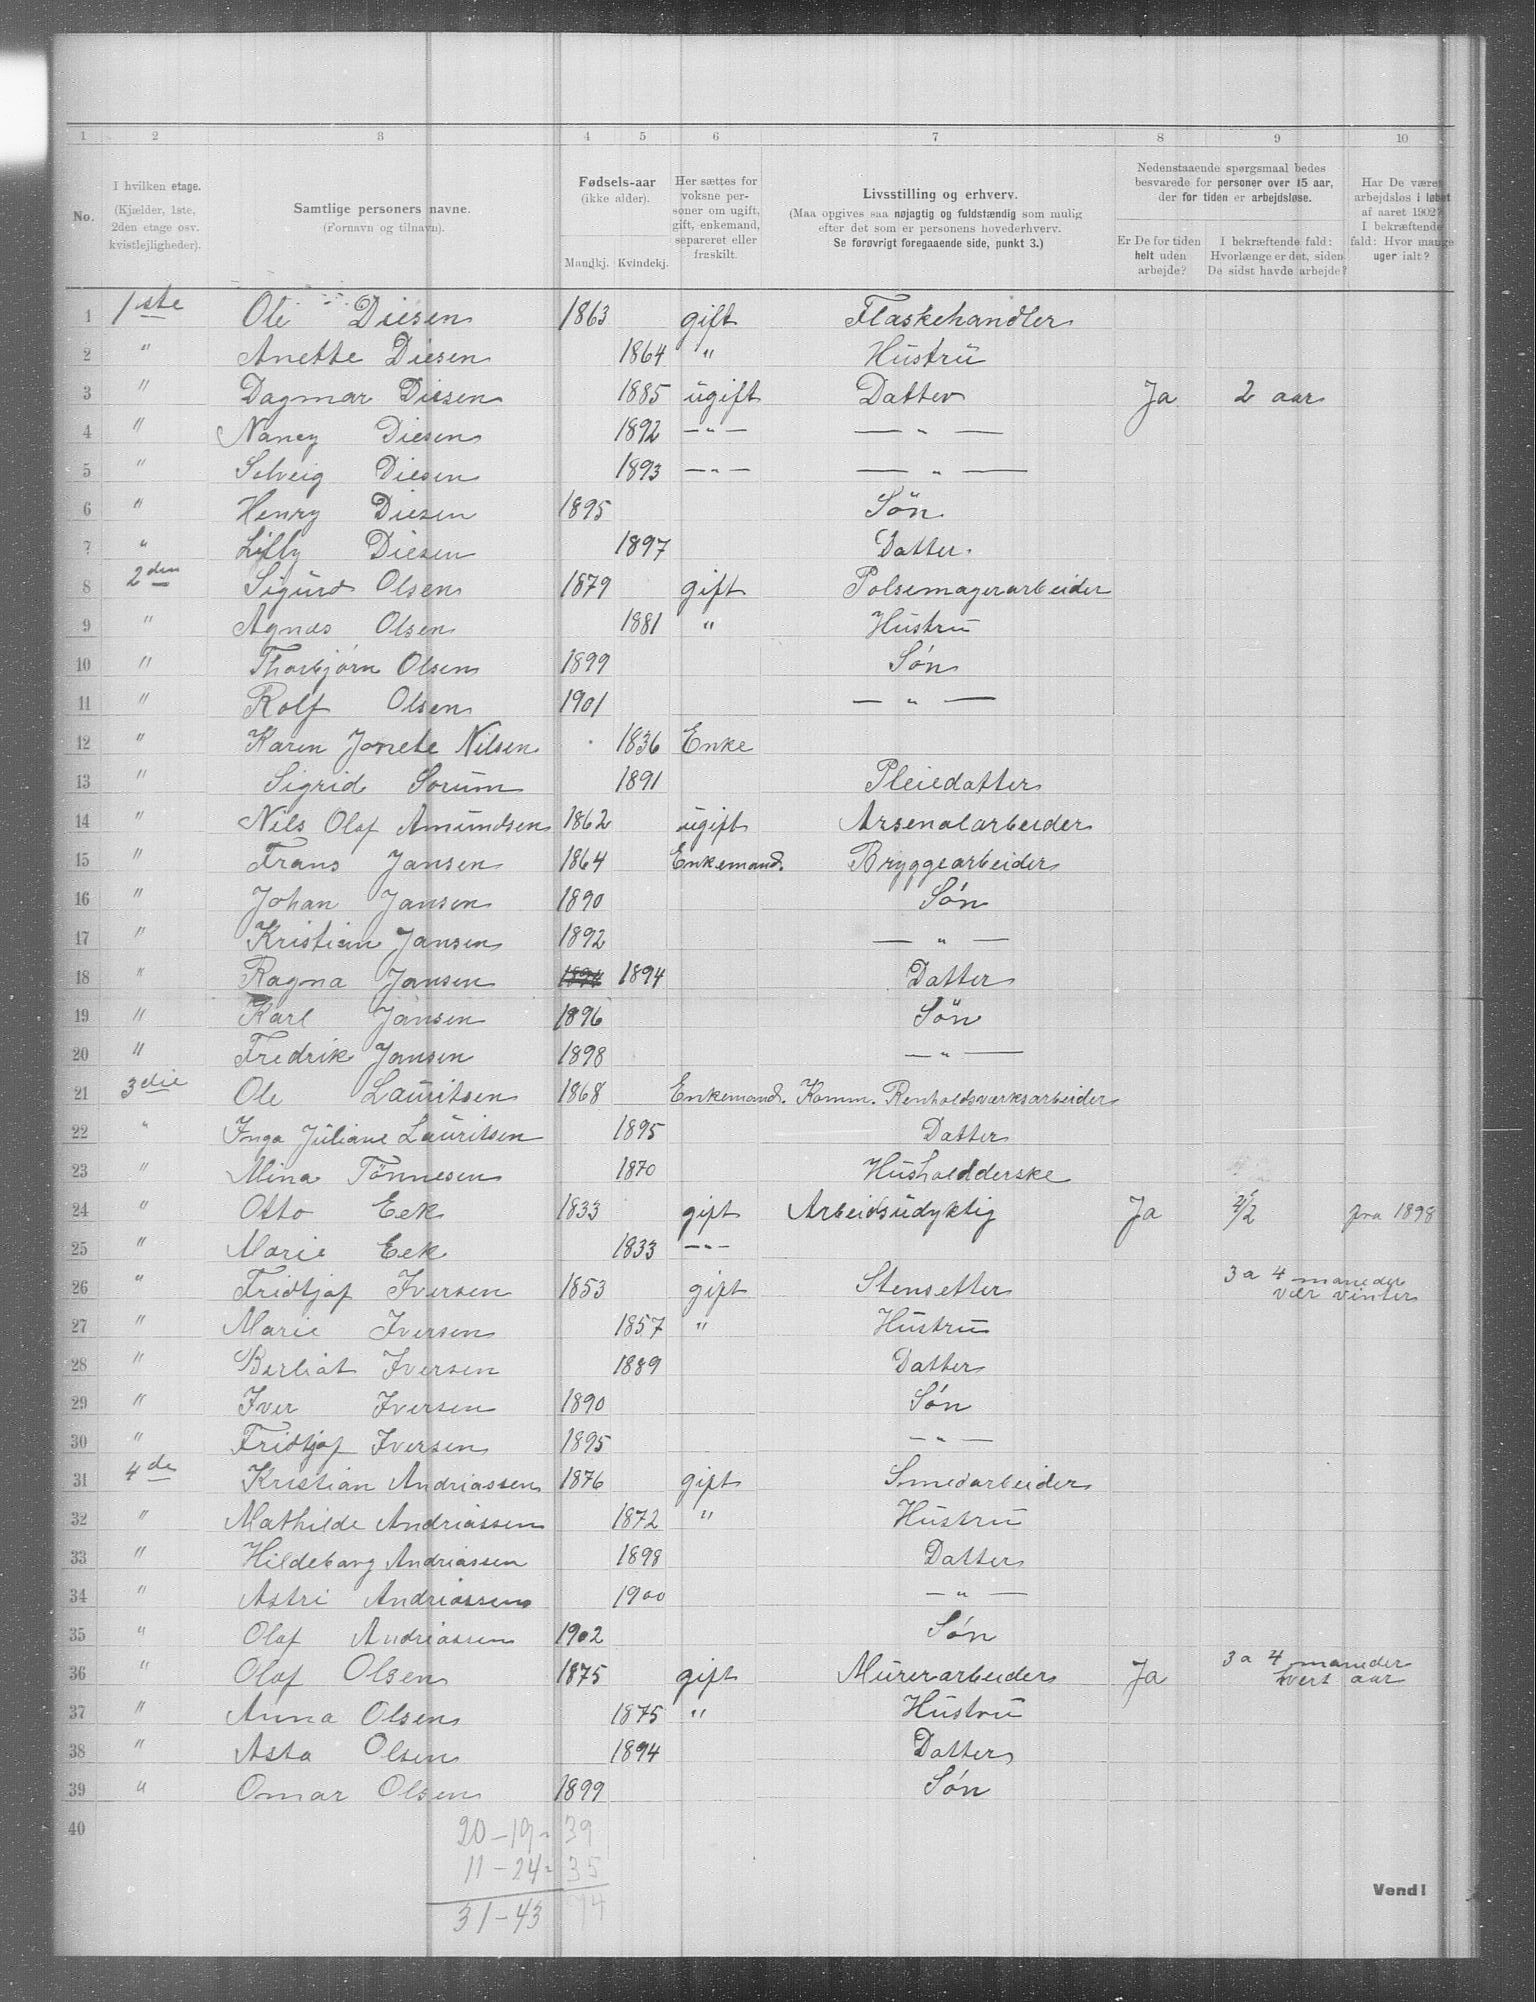 1 2 3 4 5 6 7 8 9 10
No.
I hvilken etage.
(Kjælder, 1ste, 2den etage osv. kvistlejligheder).
Samtlige personers navne.
(Fornavn og tilnavn).
Fødsels-aar
(ikke alder).
Mandkj. Kvindekj.
Her sættes for voksne personer om ugift, gift, enkemand, separeret eller fraskilt.
Livsstilling og erhverv.
(Maa opgives saa nøjagtig og fuldstændig som mulig
efter det som er personens hovederhverv.
Se forøvrigt foregaaende side, punkt 3.)
Nedenstaaende spørgsmaal bedes
besvarede for personer over 15 aar,
der for tiden er arbejdsløse.
Er De for tiden helt uden arbejde?
I bekræftende fald: Hvorlænge er det, siden De sidst havde arbejde?
Har De været arbejdsløs i løbet af aaret 1902? I bekræftende fald: Hvor mange uger ialt?
1 1ste Ole Diesen 1863 gift Flaskehandler
2 " Anette Diesen 1864 " Hustru
3 " Dagmar Diesen 1885 ugift Datter Ja 2 aar
4 " Nancy Diesen 1892 — " — — " —
5 " Solveig Diesen 1893 — " — — " —
6 " Henry Diesen 1895 Søn
7 " Lilly Diesen 1897 Datter.
8 2den Sigurd Olsen 1879 gift Polsemagerarbeider
9 " Agnes Olsen 1881 " Hustru
10 " Thorbjørn Olsen 1899 Søn
11 " Rolf Olsen 1901 — " —
12 " Karen Jonete Nilsen 1836 Enke
13 " Sigrid Sorum 1891 Pleiedatter
14 " Nils Olaf Amundsen 1862 ugift Arsenalarbeider
15 " Frans Jansen 1864 Enkemand. Bryggearbeider
16 " Johan Jansen 1890 Søn
17 " Kristian Jansen 1892 — " —
18 " Ragna Jansen 1894 1894 Datter
19 " Karl Jansen 1896 Søn
20 " Fredrik Jansen 1898 — " —
21 3die Ole Lauritsen 1868 Enkemand. Komm. Renholdsværksarbeider
22 " Inga Juliane Lauritsen 1895 Datter
23 " Mina Tönnesen 1870 Husholdderske
24 " Otto Eek 1833 gift Arbeidsudyktig Ja fra 1898
25 " Marie Eek 1833 — " —
26 " Fridtjof Iversen 1853 gift Stensetter 3 a 4 maneder
vær vinter
27 " Marie Iversen 1857 " Hustru
28 " Berliot Iversen 1889 Datter
29 " Iver Iversen 1890 Søn
30 " Fridtjof Iversen 1895 — " —
31 4de Kristian Andriassen 1876 gift Smedarbeider
32 " Mathilde Andriassen 1872 " Hustru
33 " Hildebarg Andriassen 1898 Datter
34 " Astri Andriassen 1900 — " —
35 " Olaf Andriassen 1902 Søn
36 " Olaf Olsen 1875 gift Murerarbeider Ja 3 a 4 maneder
hvert aar
37 " Anna Olsen 1875 " Hustru
38 " Asta Olsen 1894 Datter
39 " Omar Olsen 1899 Søn
40
20 – 19 = 39
11 – 24 = 35
31 – 43 74
Vend!